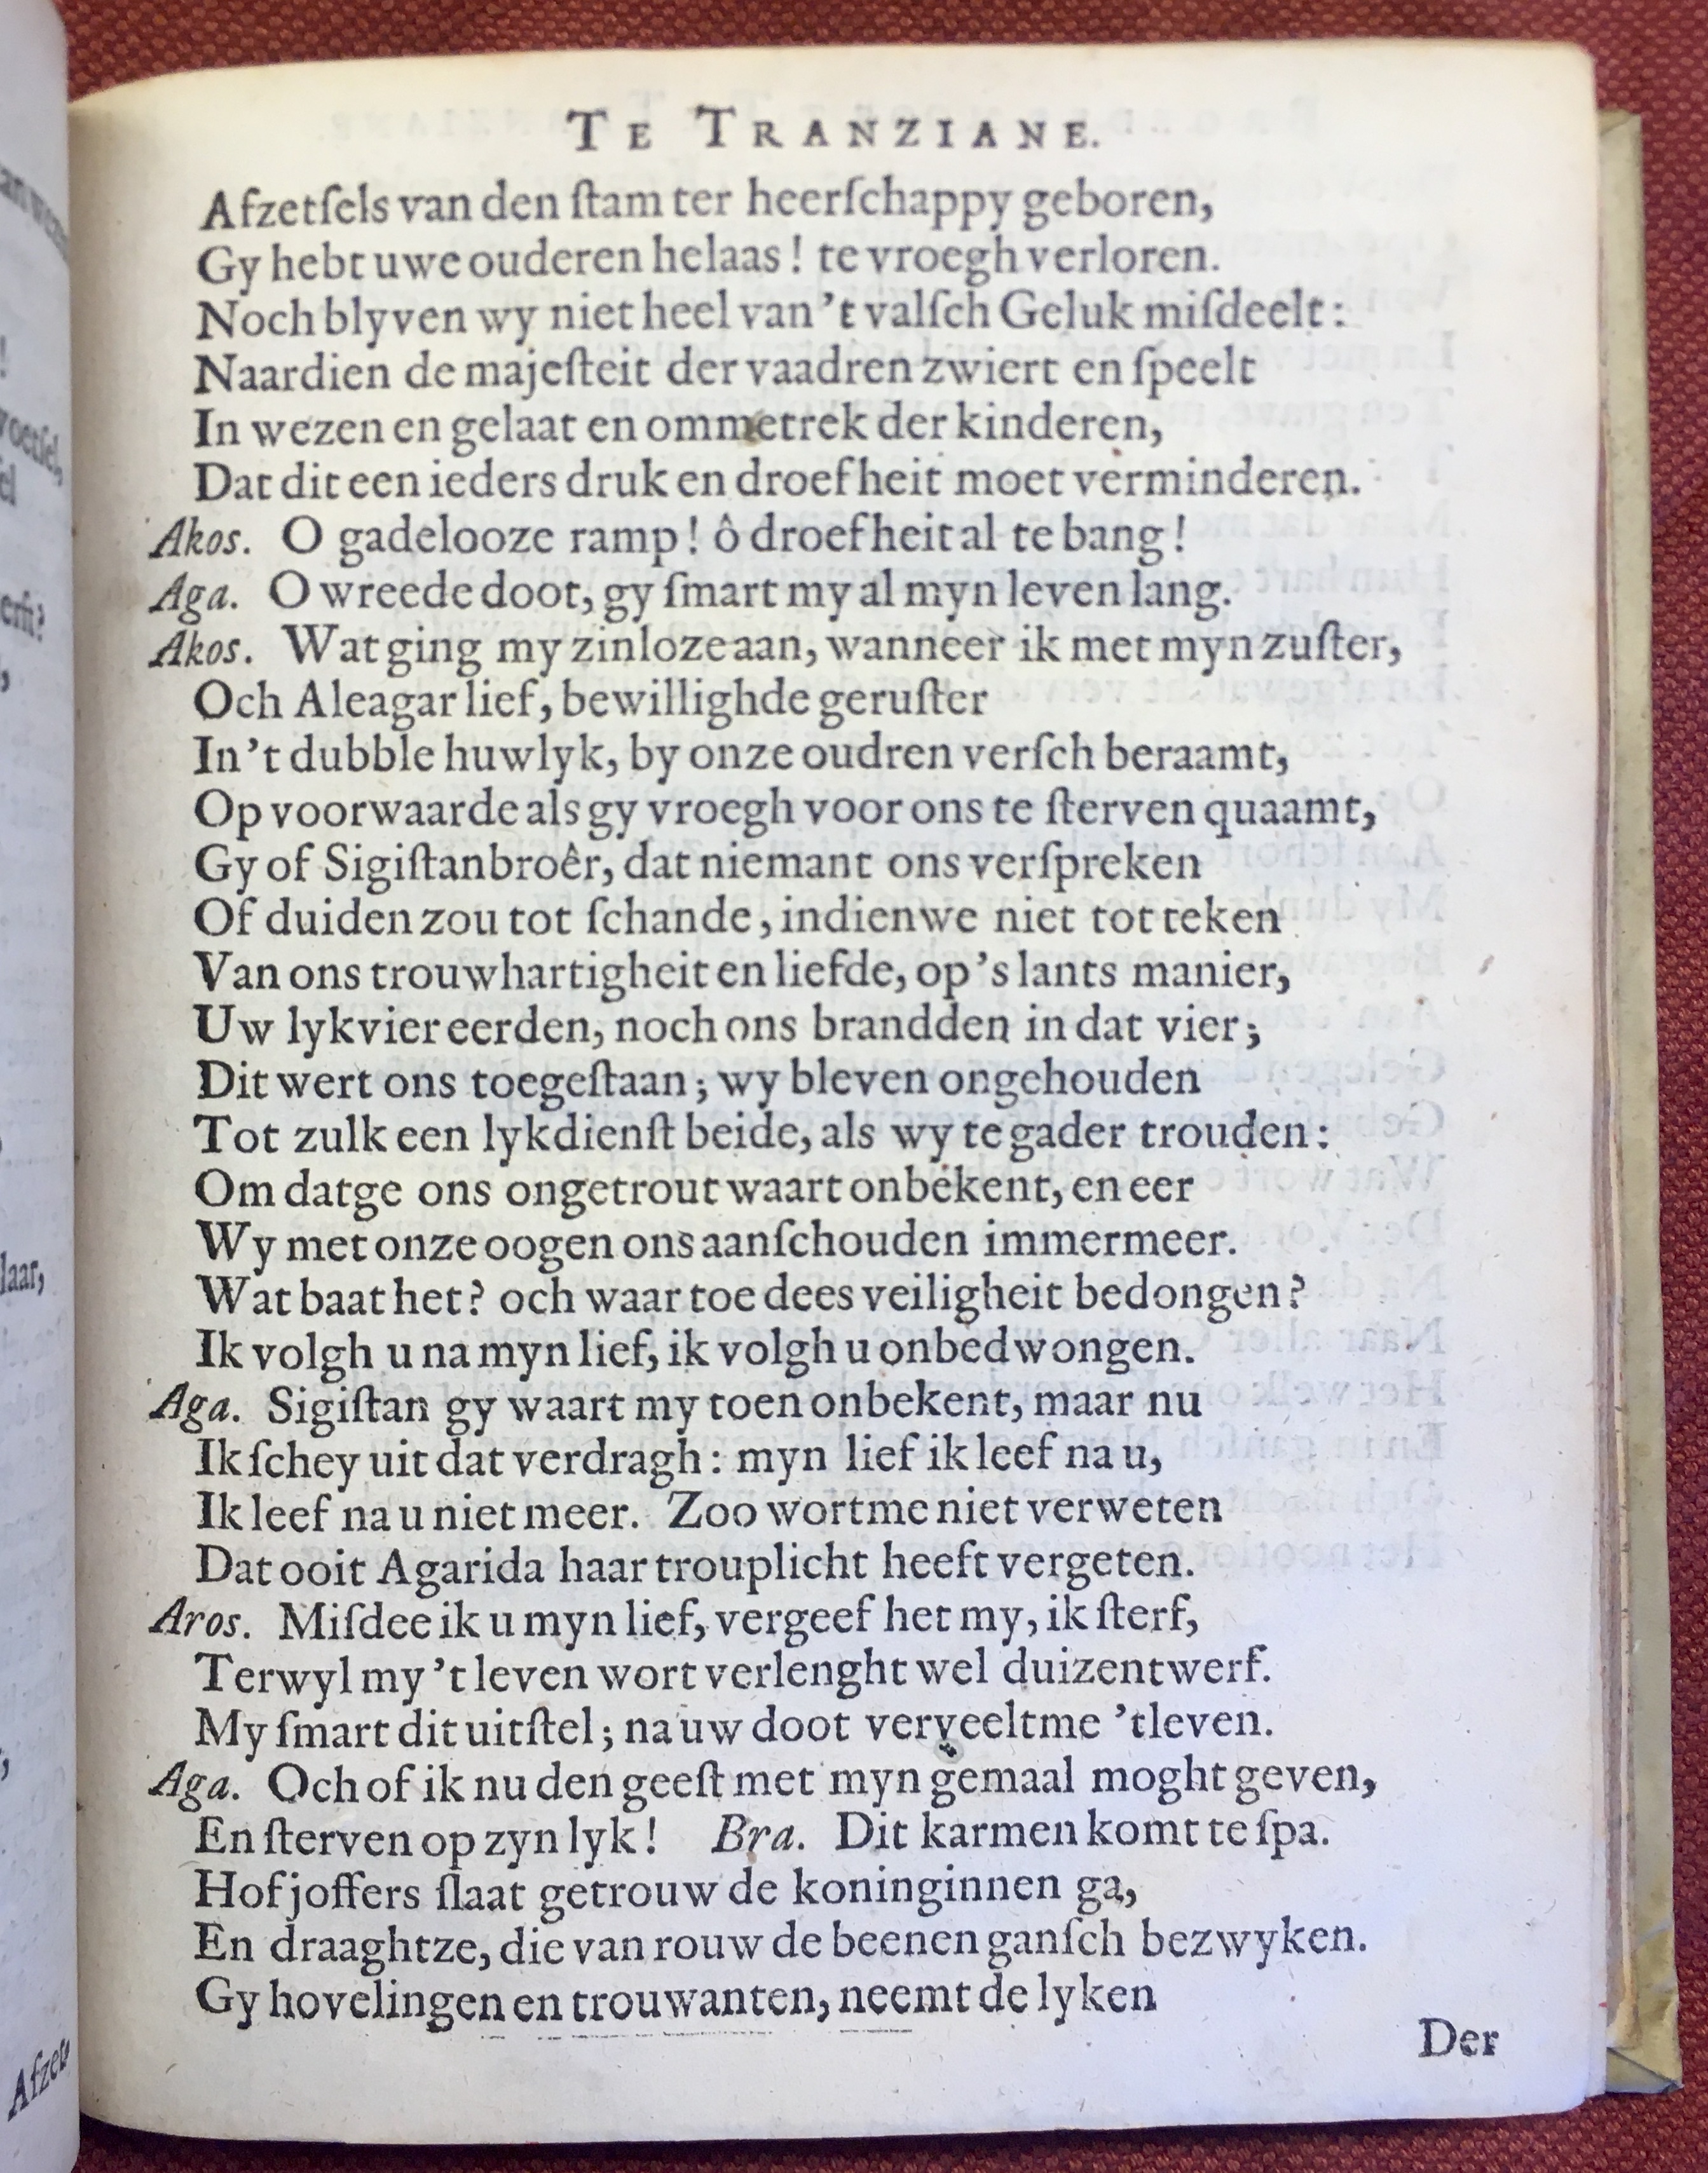 TE TRANZIANE.
Afzetſels van den ſtam ter heerſchappy geboren,
Gy hebt uwe ouderen helaas! te vroegh verloren.
Noch blyven wy niet heel van 't valſch Geluk miſdeelt:
Naardien de majeſteit der vaadren zwiert en ſpeelt
In wezen en gelaat en ommetrek der kinderen,
Dat dit een ieders druk en droefheit moet verminderen.
Akos. O gadelooze ramp! ô droefheit al te bang!
Aga. O wreede doot, gy ſmart my al myn leven lang.
Akos. Wat ging my zinloze aan, wanneer ik met myn zuſter,
Och Aleagar lief, bewillighde geruſter
In 't dubble huwlyk, by onze oudren verſch beraamt,
Op voorwaarde als gy vroegh voor ons te ſterven quaamt,
Gy of Sigiſtan broêr, dat niemant ons verſpreken
Of duiden zou tot ſchande, indien we niet tot teken
Van ons trouwhartigheit en liefde, op 's lants manier,
Uw lykvier eerden, noch ons brandden in dat vier;
Dit wert ons toegeſtaan; wy bleven ongehouden
Tot zulk een lykdienſt beide, als wy te gader trouden:
Om datge ons ongetrout waart onbekent, en eer
Wy met onze oogen ons aanſchouden immermeer.
Wat baat het? och waar toe dees veiligheit bedongen?
Ik volgh u na myn lief, ik volgh u onbedwongen.
Aga. Sigiſtan gy waart my toen onbekent, maar nu
Ik ſchey uit dat verdragh: myn lief ik leef na u,
Ik leef na u niet meer. Zoo wort me niet verweten
Dat ooit Agarida haar trouplicht heeft vergeten.
Aros. Miſdee ik u myn lief, vergeef het my, ik ſterf,
Terwyl my 't leven wort verlenght wel duizentwerf.
My ſmart dit uitſtel; na uw doot verveeltme 't leven.
Aga. Och of ik nu den geeſt met myn gemaal moght geven,
En ſterven op zyn lyk! Bra. Dit karmen komt te ſpa.
Hofjoffers ſlaat getrouw de koninginnen ga,
En draaghtze, die van rouw de beenen ganſch bezwyken.
Gy hovelingen en trouwanten, neemt de lyken
Der